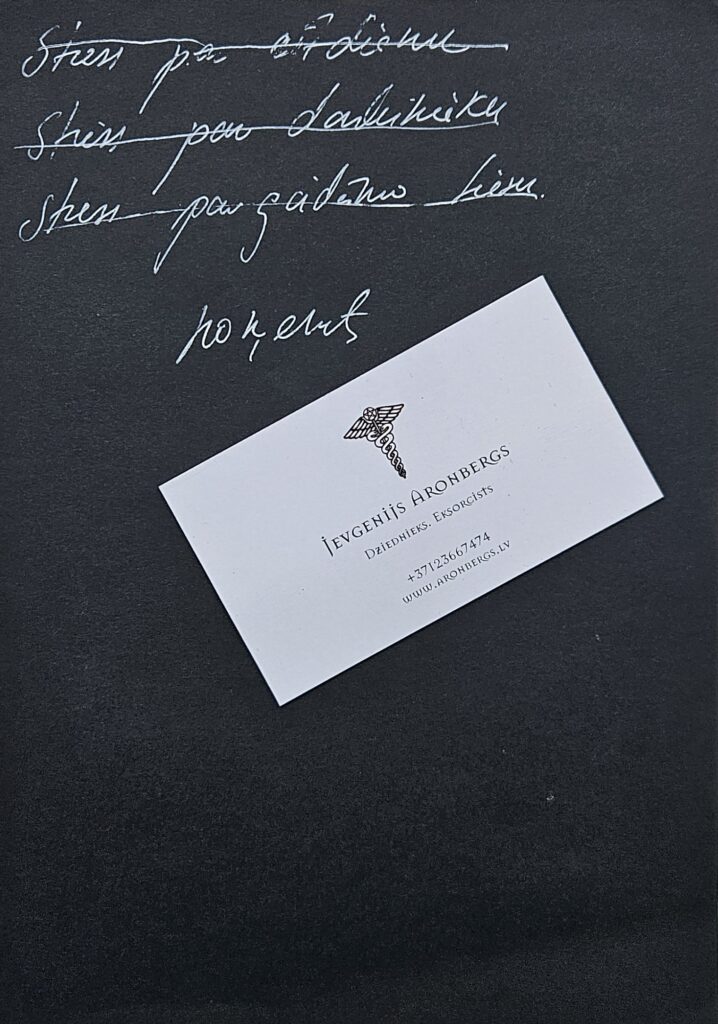 Stress par
stress par darbinieku
stress par gaidāmo tiesu.
noņemts
Jevgenijs Aronbergs
Dziednieks. Eksorcists
+37123667474
www.aronbergs.lv